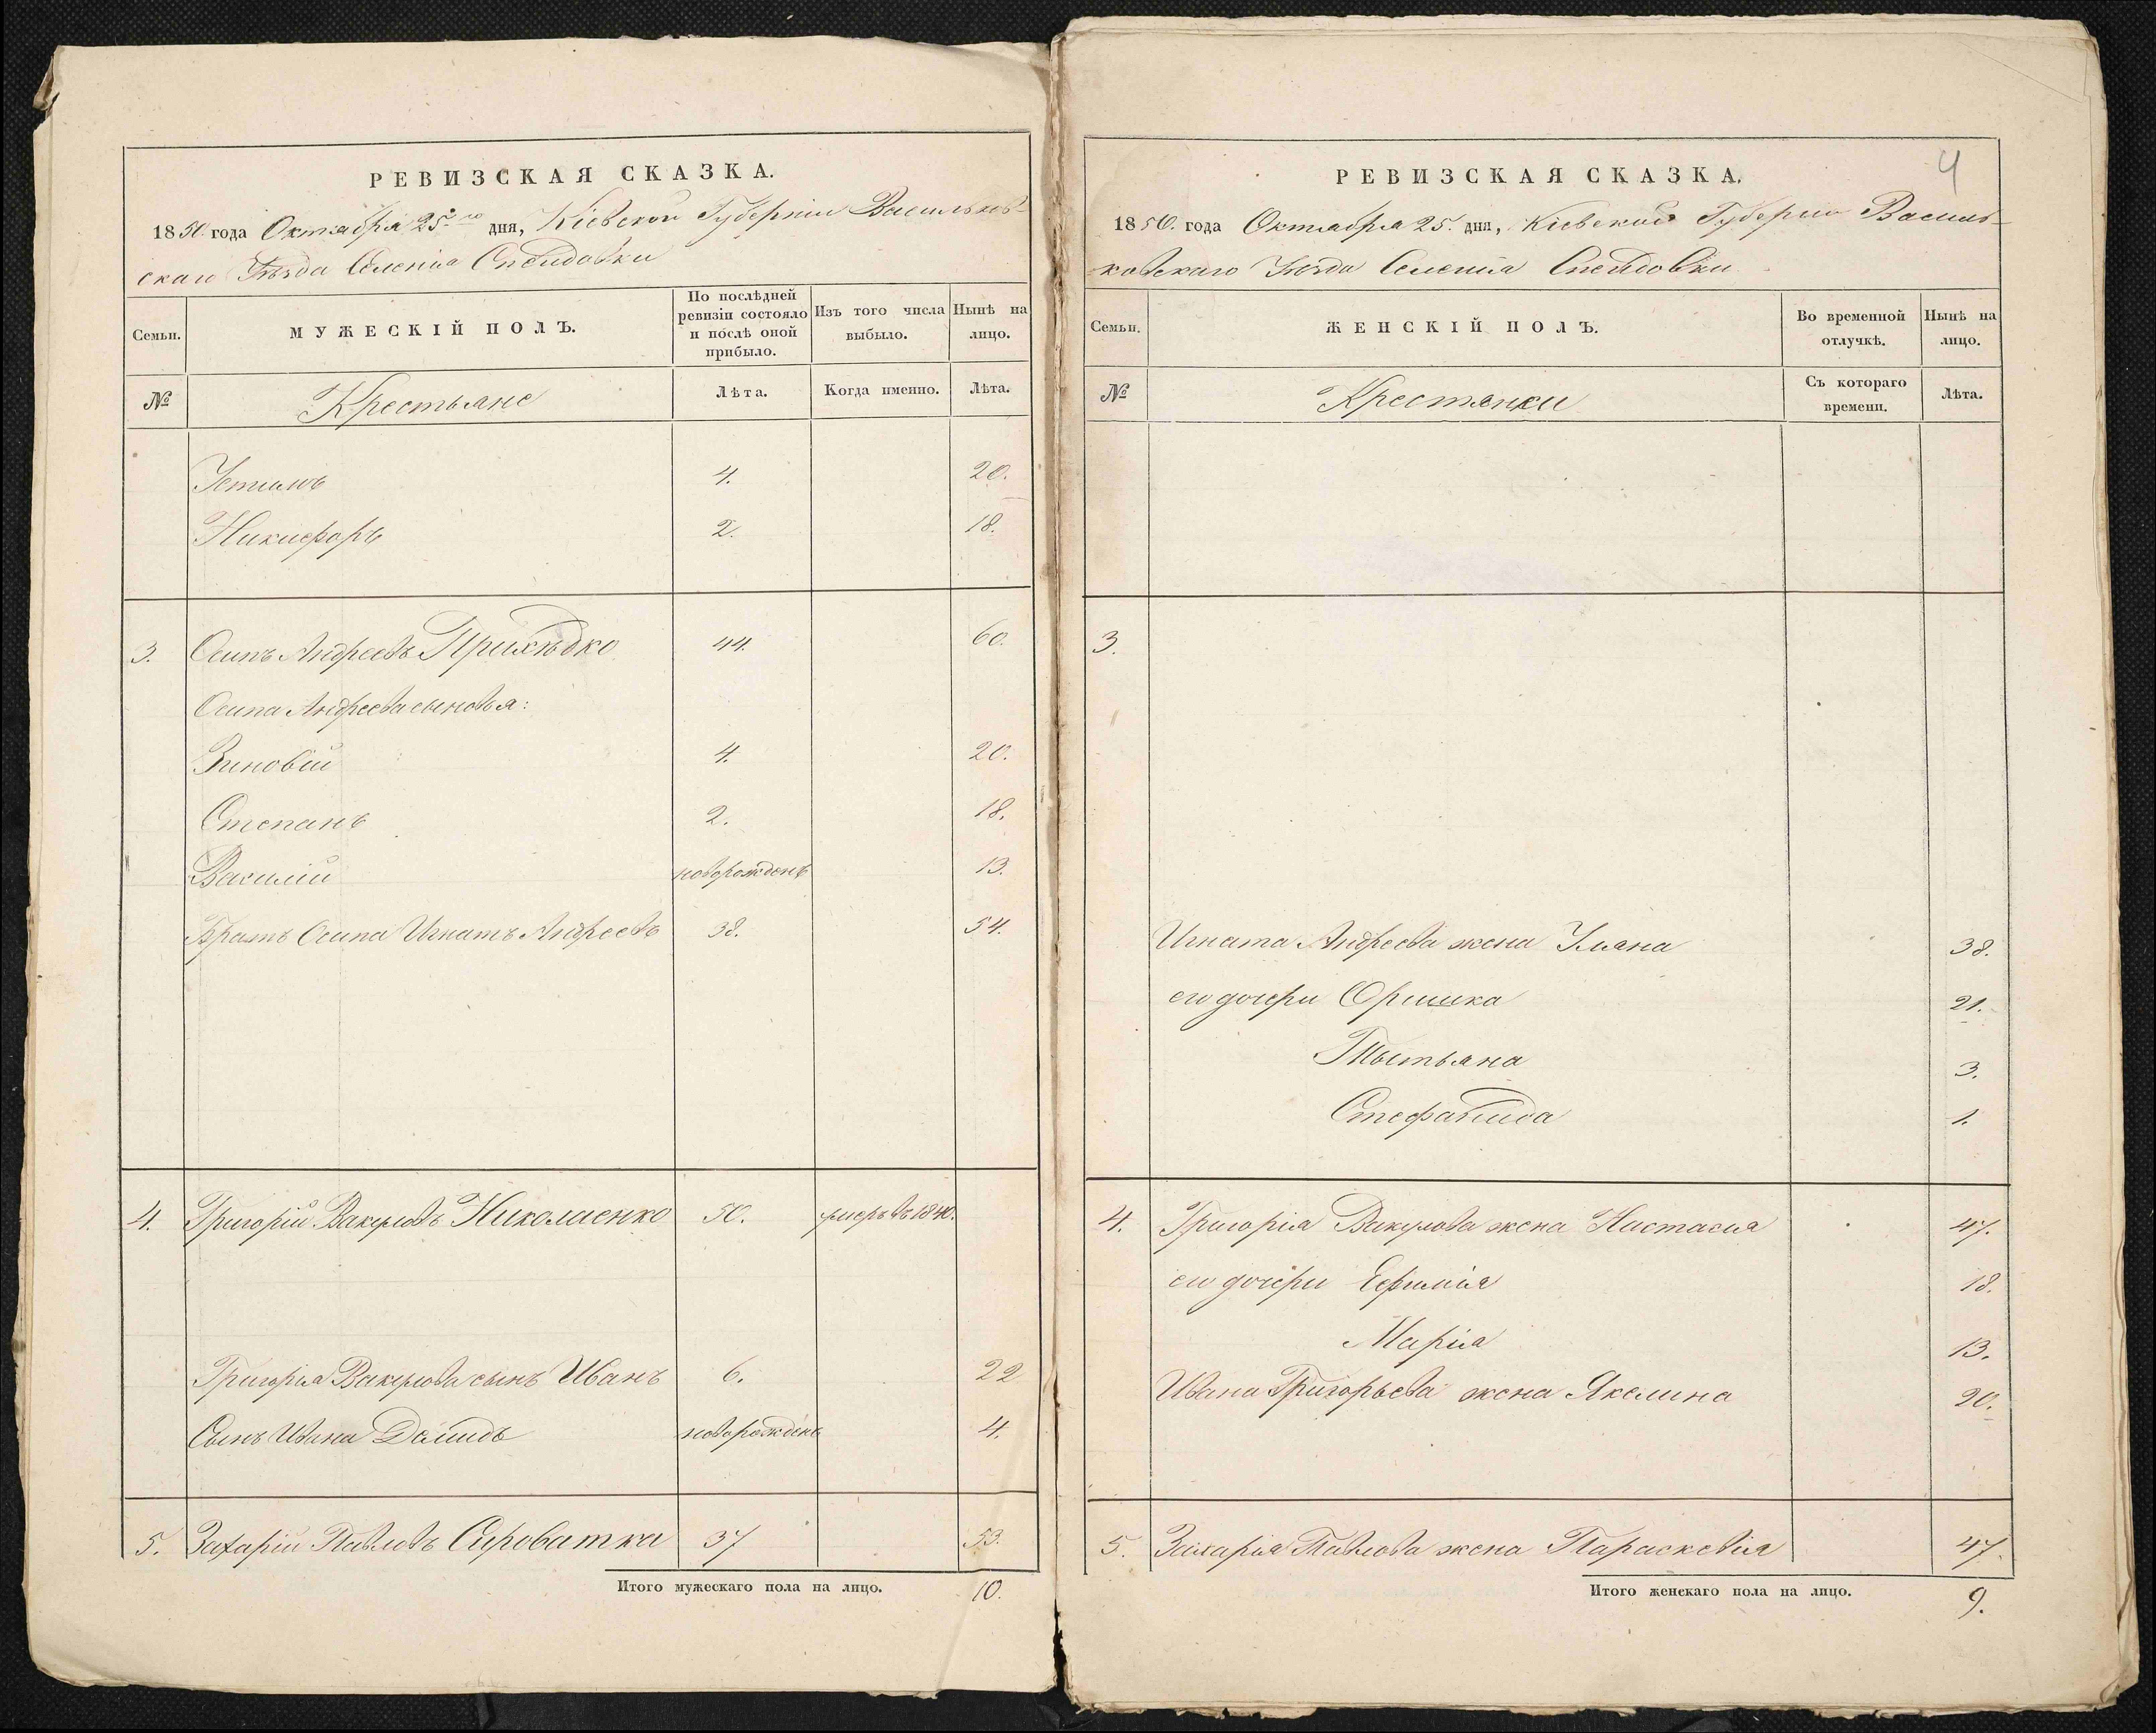 РЕВИЗСКАЯ СКАЗКА.
1850 года Октября 25го дня, Кіевской Губерніи Васильков-
скаго Уѣзда Селенія
Семьи.
МУЖЕСКІЙ ПОЛЪ.
По послѣдней ревизіи состояло и послѣ оной прибыло.
Изъ того числа выбыло.
Нынѣ на лицо.
№ Крестьяне Лѣта. Когда именно. Лѣта.
Устимъ 4. 20.
Никифоръ 2. 18.
3. Осипъ Андреевъ Прихѣдко 44. 60.
Осипа Андреева сыновья:
Зиновій 4. 20.
Степанъ 2. 18.
Василій новорожденъ 13.
Братъ Осипа Игнатъ Андреевъ 38. 54.
4. Григорій Вакуловъ Николаенко 50. умеръ въ 1840.
Григорія Вакулова сынъ Иванъ 6. 22
Сынъ Ивана новорожденъ 4.
5. Захарій Павловъ Сыроватка 37 53.
Итого мужескаго пола на лицо. 10.
4
РЕВИЗСКАЯ СКАЗКА.
1850. года Октября 25. дня, Кіевской Губерніи Василь-
ковскаго Уѣзда Селенія
Семьи.
ЖЕНСКІЙ ПОЛЪ.
Во временной отлучкѣ.
Нынѣ на лицо.
№ Крестянки Съ котораго времени. Лѣта.
3.
Игната Андреева жена Уляна 38.
его дочери Оришка 21.
Тытьяна 3.
Стефанида 1.
4. Григорія Вакулова жена Настасия 47.
его дочери Ефимія 18.
Марія 13.
Ивана Григорьева жена Якелина 20.
5. Захарія Павлова жена Параскевія 47.
Итого женскаго пола на лицо. 9.